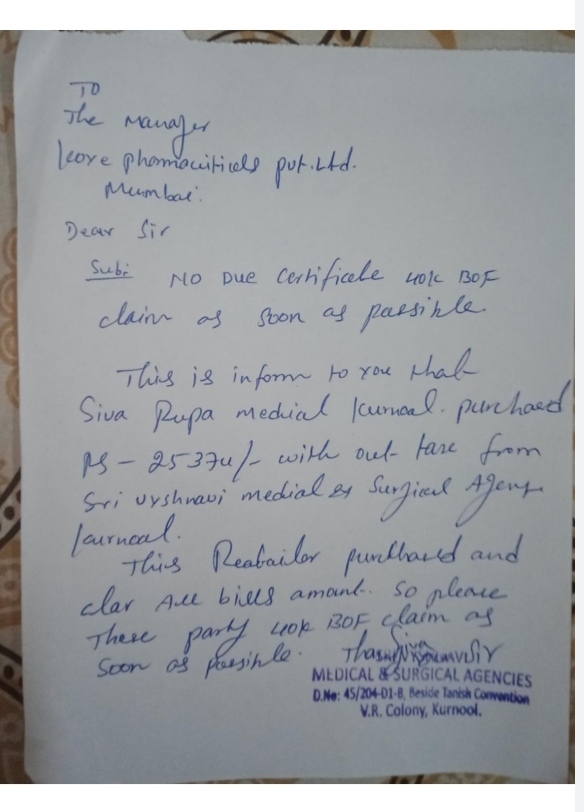 TO
The Manager
Leore pharmaciticals pvt.Ltd.
Mumbai.
Dear Sir
Sub: NO Due Certificate 40k BOF
claim as soon as possible.
This is inform to you that
Siva Rupa medical Kurnool. purchased
RS - 25374/- with out taxe from
Sri vyshnavi medical & Surgical Agency
Kurnool.
This Reatailor purchased and
clar All bills amount. So please
These party 40k BOF claim as
soon as possible.
MEDICAL & SURGICAL AGENCIES
D.No: 45/204-D1-B, Beside Tanish Convention
V.R. Colony, Kurnool.